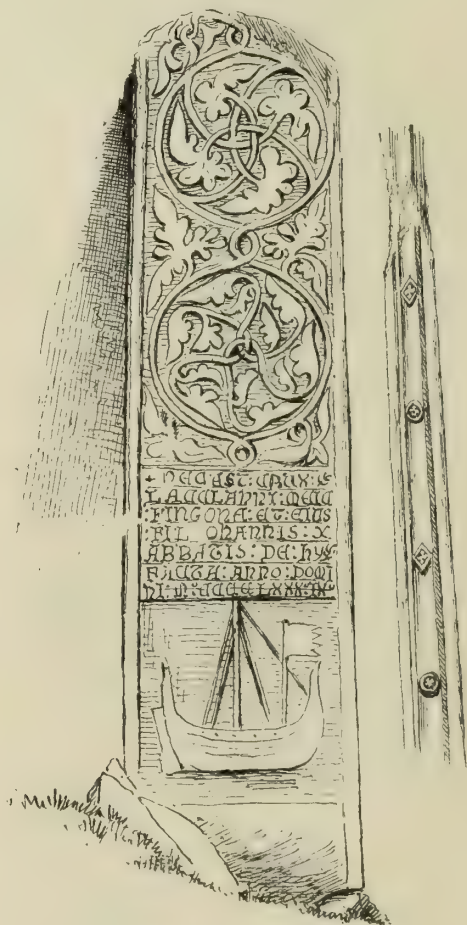 + HEC : EST : CRUX :
LACCLANNI : MEIC
: FINGONA : ET : EIUS
: FIL OHANNIS : X
ABBATIS : DE : HY :
FACTA : ANNO : DOMI
NI : M : CCCC LXXX : IX